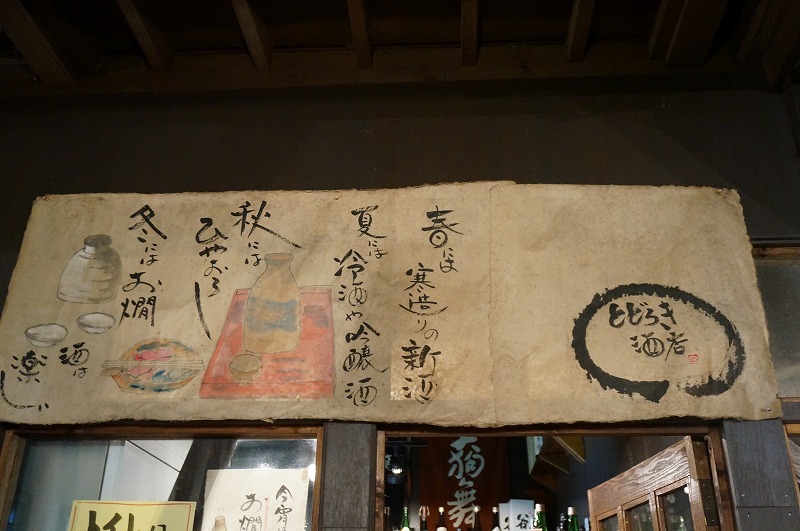 春には
寒造りの新酒
夏には
冷酒や吟醸酒
秋には
ひやおろし
冬にはお燗
酒は
楽しい
とどろき
酒店
今宵
お燗
舞
谷